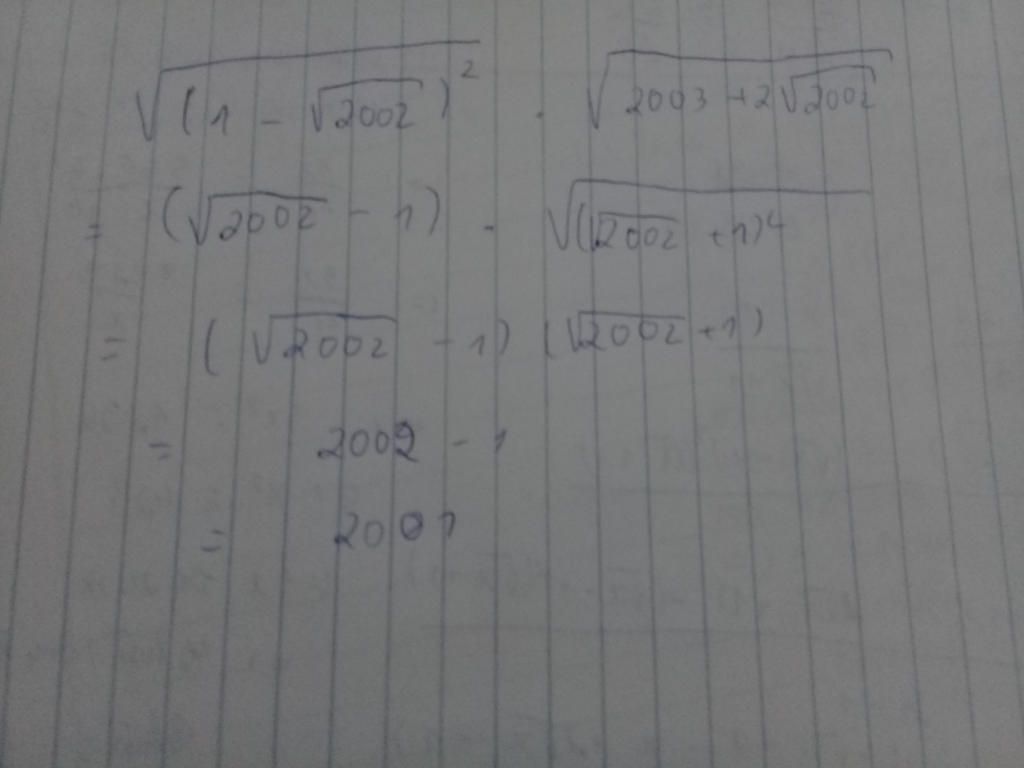 √((1 - √2002)²) . √(2003 + 2√2002)
= (√2002 - 1) . √((√2002 + 1)²)
= (√2002 - 1) (√2002 + 1)
= 2002 - 1
= 2001